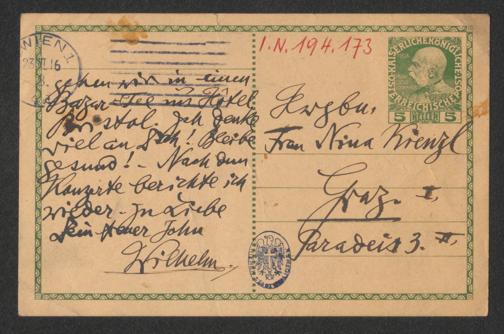 WIEN 1
I.N. 194.173
gehen wir in einen
Bazar-Tee ins Hotel
Bristol. Ich denke
viel an Dich! Bleibe
gesund! - Nach dem
Konzerte berichte ich
wieder. In Liebe
Dein treuer Sohn
Wilhelm.
5 HELLER 5
Frau Nina Kienzl
Graz. I,
Paradeis 3. II,